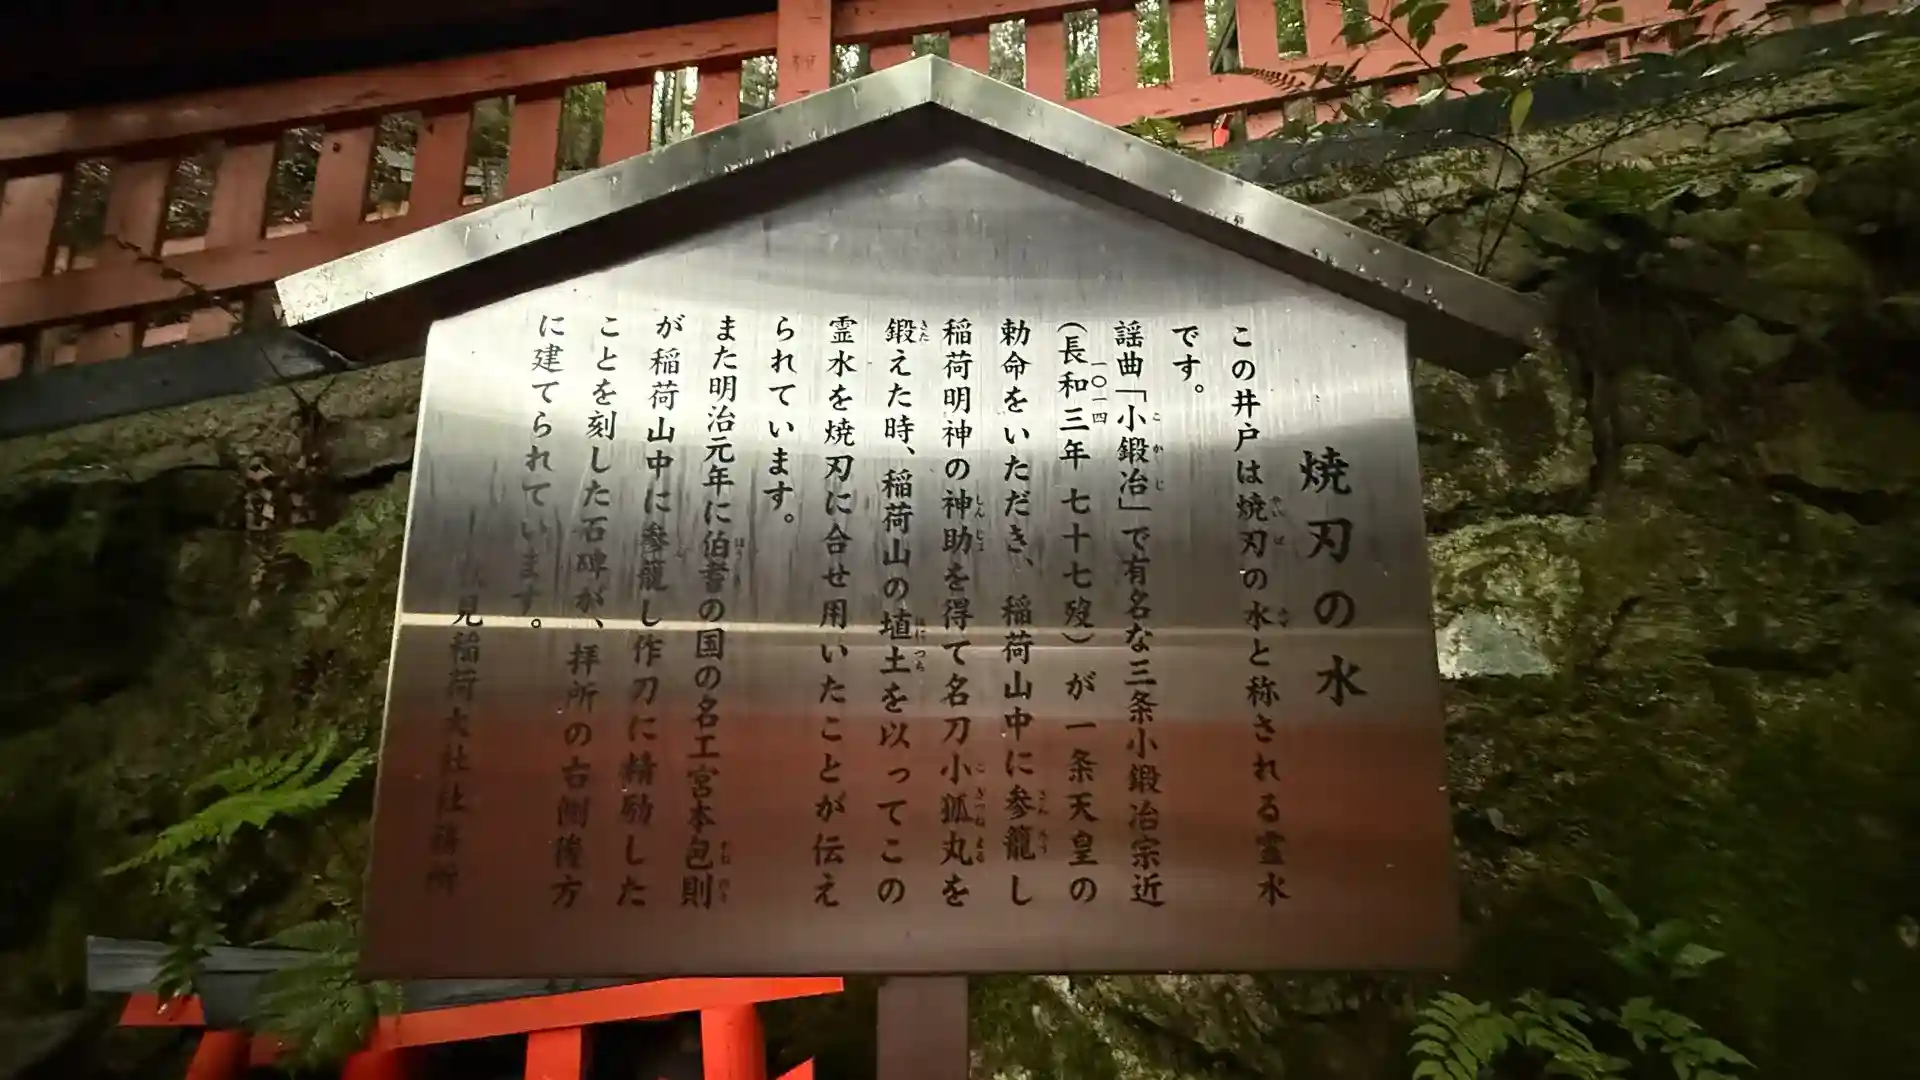 焼刃の水
この井戸は焼刃の水と称される霊水
です。
謡曲「小鍛冶」で有名な三条小鍛冶宗近
(長和三年 七十七歿)が一条天皇の
勅命をいただき、稲荷山中に参籠し
稲荷明神の神助を得て名刀小狐丸を
鍛えた時、稲荷山の埴土を以ってこの
霊水を焼刃に合せ用いたことが伝え
られています。
また明治元年に伯耆の国の名工宮本包則
が稲荷山中に参籠し作刀に精励した
ことを刻した石碑が、拝所の右側後方
に建てられています。
見稲荷大社社務所